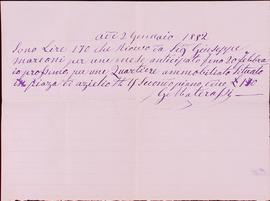 2 Gennaio 1882
Sono Lire 170 che ricevo da Sig Giuseppe
Marconi per un mese anticipato fino 20 febbra
io prossimo per un Quartiere ammobiliato situato
in piazza di azielio N 4 secondo piano, dico £ 170